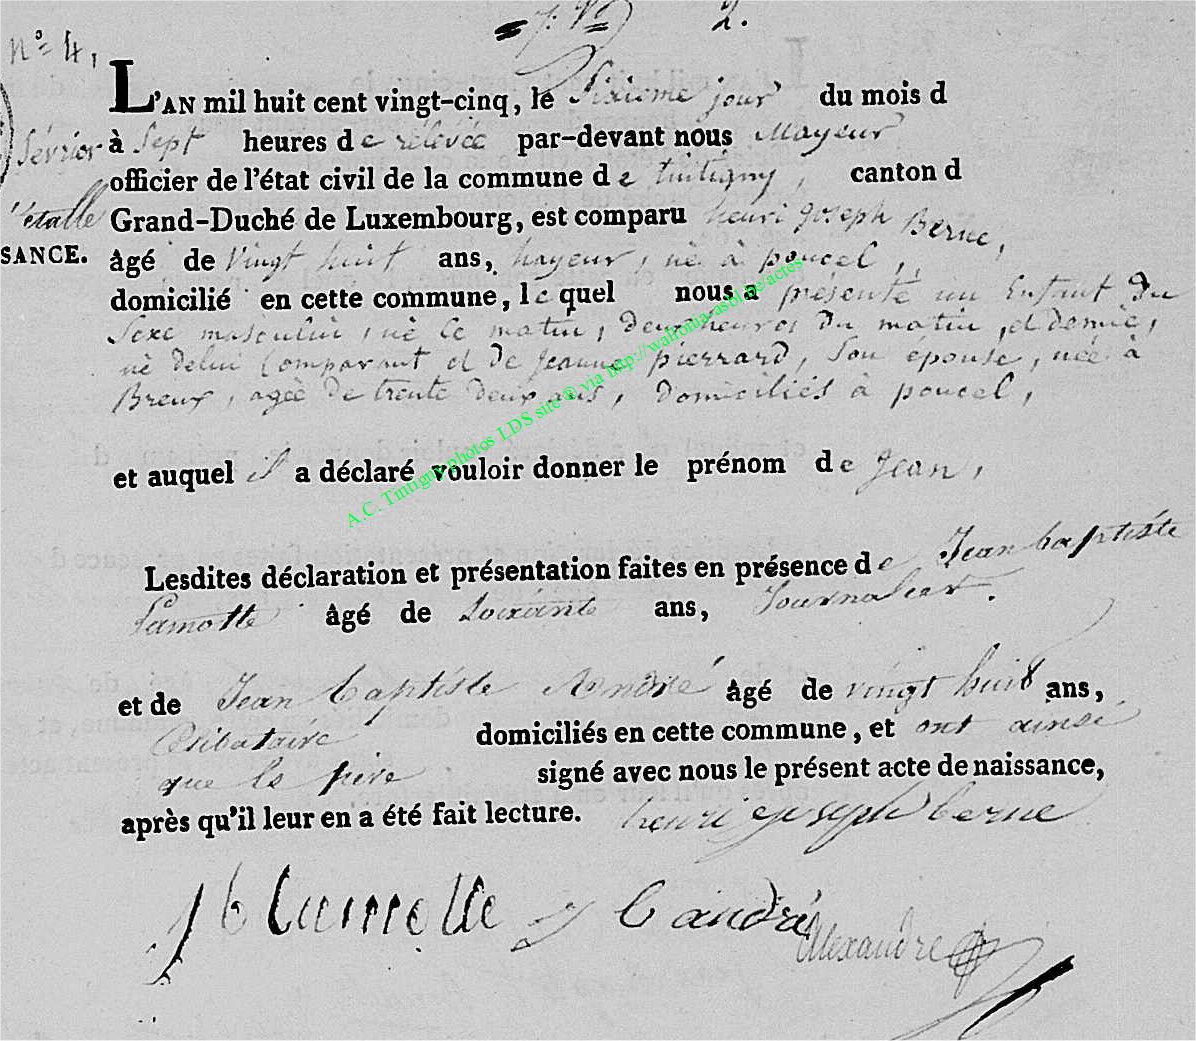 2.
nº 4,
L'AN mil huit cent vingt-cinq, le Sixiome jour du mois d
février à Sept heures de relevée par-devant nous Mayeur
officier de l'état civil de la commune de tintigny, canton d
l'étalle Grand-Duché de Luxembourg, est comparu henri joseph Berne,
SANCE. âgé de Vingt huit ans, hayeur, né à poncel,
domicilié en cette commune, lequel nous a présenté un Enfant Du
Sexe masculin, né ce matin, deux heures du matin, et demie,
né de lui Comparant et de Jeanne pierrard, Son épouse, née à
Breux, agée de trente deux ans, Domiciliés à poncel,
et auquel il a déclaré vouloir donner le prénom de Jean,
Lesdites déclaration et présentation faites en présence de Jean baptiste
Lamotte âgé de Soixante ans, Journalier.
et de Jean baptiste André âgé de vingt huit ans,
Célibataire domiciliés en cette commune, et ont ainsi
que le père signé avec nous le présent acte de naissance,
après qu'il leur en a été fait lecture. henri joseph berne
J b Lamotte J b andré
Alexandre
A.C. Tintigny photos LDS site @ via http://walfroma-asbl.be/actes